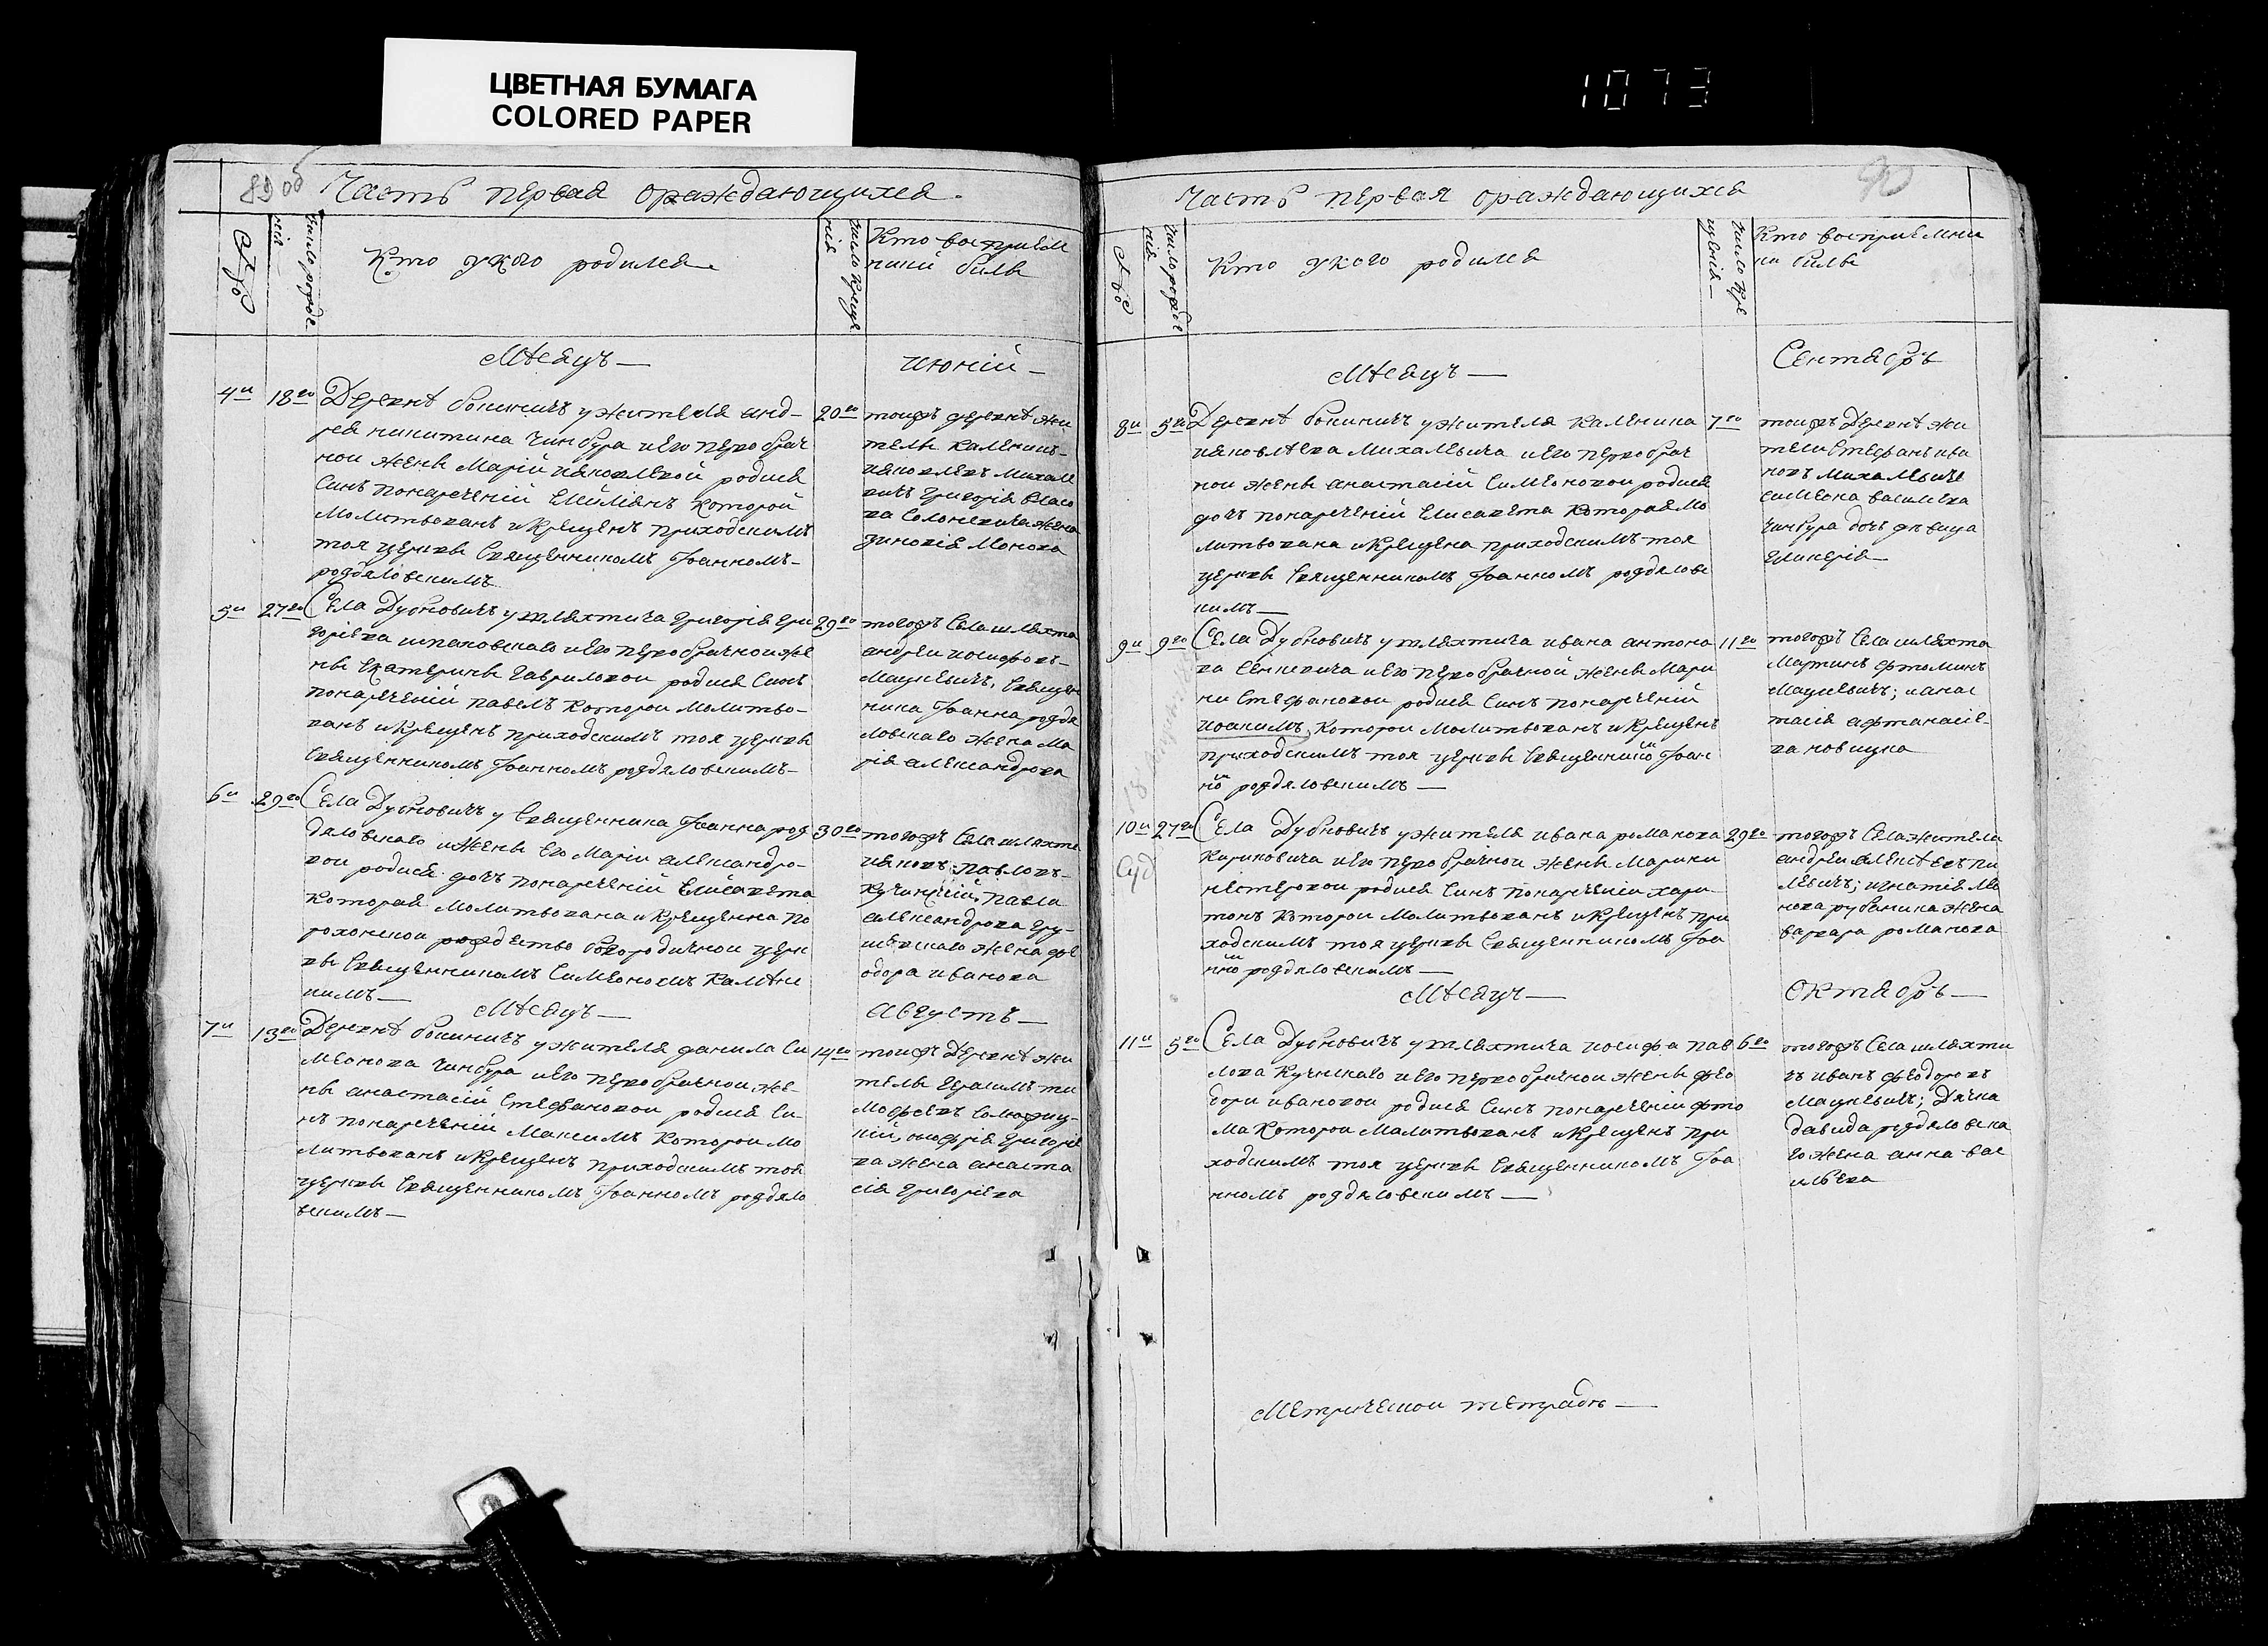 ЦВЕТНАЯ БУМАГА
COLORED PAPER
1073
89 об
Часть первая ораждающихся
Число рожде
нія
Кто укого родился
Число креще
нія
Кто воспріем
ники были
Мѣсяцъ
июній
4и 18го Деревнѣ бокиничъ ужителя анд-
рея никитина Чинбура иего первобрач
нои жены Маріи ияковлевой родися
Синъ понареченій Емиліянъ которой
Молитвованъ икрещенъ приходскимъ
тоя церкви Священникомъ Іоанномъ
роздяловскимъ
20го тоизъ деревнѣ жи
тель каленикъ
ияковлевъ Михале
вичъ григорія Власо
ва Солоневича жена
зиновія Монова
5и 27го Села Дубновичъ ушляхтича григорія гри
горіева шпаковскаго иего первобрачноиже
ны Екатерины гавриловои родися Синъ
понареченій павелъ которои Молитво-
ванъ икрещенъ приходскимъ тоя церкви
Священникомъ Іоанномъ роздяловскимъ
29го тогожъ Села шляхта
андреи иосифовъ
Мацкевичъ, Священ
ника Іоанна роздя
ловскаго жена Ма
рія александрова
6и 29го Села Дубновичъ у Священника Іоанна роз
дяловскаго ижены Его Маріи александро-
вои родися дочъ понареченій Елисавета
которая Молитвована икрещенна по
рохонскои рождество богородичнои церк
вы Священникомъ Симеономъ Калѣни
кимъ
30го тогожъ Села шляхта
ияковъ павловъ
кучинскій, павла
александрова гру-
шевскаго жена фе
одора иванова
Мѣсяцъ
Августъ
7и 13го Деревнѣ бокиничъ ужителя данила Си
Меонова Чинбура иего первобрачнои же-
ны анастасіи Стефановои родися Си-
нъ понареченій Максимъ которои Мо
литвованъ икрещенъ приходскимъ тоя
церкви Священникомъ Іоанномъ роздяло
вскимъ
14го тоизъ Деревнѣ жи
тель герасимъ ти
Мофеевъ
кій, онофрія григорие
ва жена анаста
сія григоріева
90
Часть первая ораждающихся
Число рожде
нія
Кто укого родился
Число кре
щенія
Кто воспріемни
ки были
Мѣсяцъ
Сентябръ
8и 5го Деревнѣ бокиничъ ужителя Каленика
ияковлева Михалевича иего первобрач
нои жены анастасіи Симеоновои родися
дочъ понареченій Елисавета котораямо
литвована икрещена приходскимъ тоя
церкви Священникомъ Іоанномъ роздяловс
кимъ
7го тоизъ Деревнѣ жи
тели Стефанъ ива
новъ Михалевичъ
симеона василева
чинбура дочъ дѣвица
гликерія
9и 9го Села Дубновичъ ушляхтича ивана антоно
ва Сенкевича иего первобрачной жены Мари
ни Стефановои родися Синъ понареченій
иоакимъ, которои Молитвованъ икрещенъ
приходскимъ тоя церкви Священнико Іоан
но роздяловскимъ
11го тогожъ Села шляхта
Мартинъ фтоминъ
Мацкевичъ; ианас
тасія афтанасіе-
ва новицка
10и 27го Села Дубновичъ ужителя ивана романова
Кириковича иего первобрачнои жены Марини
нестеровои родися Синъ понареченіи хари-
тонъ которои Молитвованъ икрещенъ при
ходскимъ тоя церкви Священникомъ Іоа
нно роздяловскимъ
29го тогожъ Села жителя
андреи алексѣевъ пи
левичъ; игнатія Ма
нова рубаника жена
варвара романова
Мѣсяцъ
октябръ
11и 5го Села Дубновичъ ушляхтича иосифа пав
лова Кучинскаго иего первобрачнои жены фео
дори ивановои родися Синъ понареченіи фто
ма которои Малитвованъ икрещенъ при
ходскимъ тоя церкви Священникомъ Іоа
нномъ роздяловскимъ
6го тогожъ Села шляхти
чъ иванъ феодоровъ
Мацкевичъ; Дячка
давида роздяловска
го жена анна вас
ильева
Метрическои тетрадъ